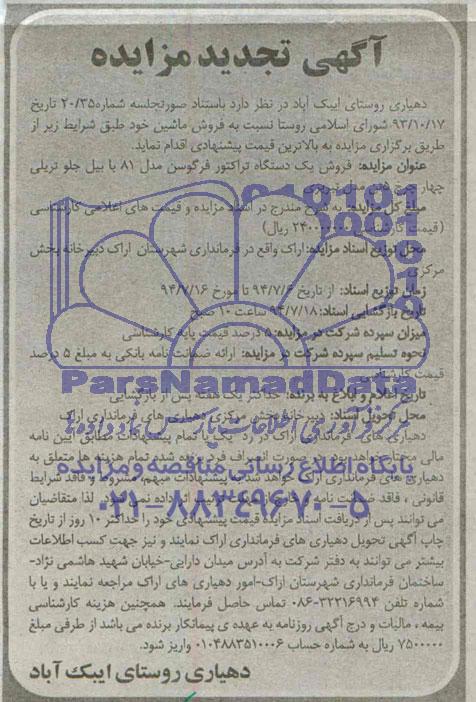 آگهی تجدید مزایده
دهیاری روستای ایبک آباد در نظر دارد باستناد صورتجلسه شماره ۲۰/۳۵ تاریخ
۹۳/۱۰/۱۷ شورای اسلامی روستا نسبت به فروش ماشین خود طبق شرایط زیر از
طریق برگزاری مزایده به بالاترین قیمت پیشنهادی اقدام نماید.
عنوان مزایده: فروش یک دستگاه تراکتور فرگوسن مدل ۸۱ با بیل جلو تریلی
چهار چرخ
مبلغ کل مزایده: به شرح مندرج در اسناد مزایده و قیمت های اعلامی کارشناسی
(قیمت کارشناسی ریال)
محل توزیع اسناد مزایده: اراک واقع در فرمانداری شهرستان اراک دبیرخانه بخش
مرکزی
زمان توزیع اسناد: از تاریخ ۹۴/۷/۶ تا مورخ ۹۴/۷/۱۶
تاریخ بازگشایی اسناد: ۹۴/۷/۱۸ ساعت ۱۰ صبح
میزان سپرده شرکت در مزایده: ۵ درصد قیمت پایه کارشناسی
نحوه تسلیم سپرده شرکت در مزایده: ارائه ضمانت نامه بانکی به مبلغ ۵ درصد
قیمت کارشناسی
ParsNamadData
تاریخ اعلام و ابلاغ به برنده: حداکثر یک هفته پس از بازگشایی
محل تحویل اسناد: دبیرخانه بخش مرکزی دهیاری های فرمانداری اراک
مرکز فرآوری اطلاعات پارس نماد داده ها
دهیاری های فرمانداری اراک در رد یک یا تمام پیشنهادات مطابق آیین نامه
مالی مختار خواهد بود. در صورت انصراف فرد برنده شده تمام هزینه ها متعلق به
پایگاه اطلاع رسانی مناقصه و مزایده
دهیاری های فرمانداری اراک خواهد شد. پیشنهادات مبهم، مشروط و فاقد شرایط
قانونی ، فاقد ضمانت نامه اثر داده نمی شود. لذا متقاضیان
۰۲۱-۸۸۳۴۹۶۷۰-۵
می توانند پس از دریافت اسناد مزایده قیمت پیشنهادی خود را حداکثر ۱۰ روز از تاریخ
چاپ آگهی تحویل دهیاری های فرمانداری اراک نمایند و نیز جهت کسب اطلاعات
بیشتر می توانند به دفتر شرکت به آدرس میدان دارایی-خیابان شهید هاشمی نژاد-
ساختمان فرمانداری شهرستان اراک-امور دهیاری های اراک مراجعه نمایند و یا با
شماره تلفن ۳۲۲۱۶۹۹۴-۰۸۶ تماس حاصل فرمایند. همچنین هزینه کارشناسی
بیمه ، مالیات و درج آگهی روزنامه به عهده ی پیمانکار برنده می باشد از طرفی مبلغ
۷۵۰۰۰۰۰ ریال به شماره حساب ۰۱۰۴۸۸۳۵۱۰۰۰۶ واریز شود.
دهیاری روستای ایبک آباد